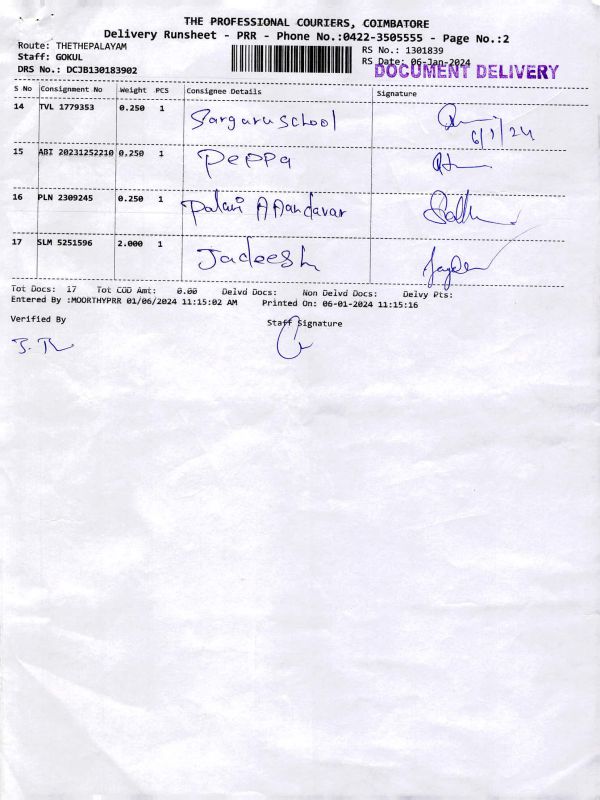 THE PROFESSIONAL COURIERS, COIMBATORE
Delivery Runsheet - PRR - Phone No.:0422-3505555 - Page No.:2
Route: THETHEPALAYAM
Staff: GOKUL
DRS No.: DCJB130183902
RS No.: 1301839
RS Date: 06-Jan-2024
DOCUMENT DELIVERY
S No Consignment No Weight PCS Consignee Details Signature
14 TVL 1779353 0.250 1 Sargaru School
6/1/24
15 ABI 20231252210 0.250 1 Peppa
16 PLN 2309245 0.250 1 Palani AAandavar
17 SLM 5251596 2.000 1 Jadeesh
Tot Docs: 17 Tot COD Amt: 0.00 Delvd Docs: Non Delvd Docs: Delvy Pts:
Entered By :MOORTHYPRR 01/06/2024 11:15:02 AM Printed On: 06-01-2024 11:15:16
Verified By Staff Signature